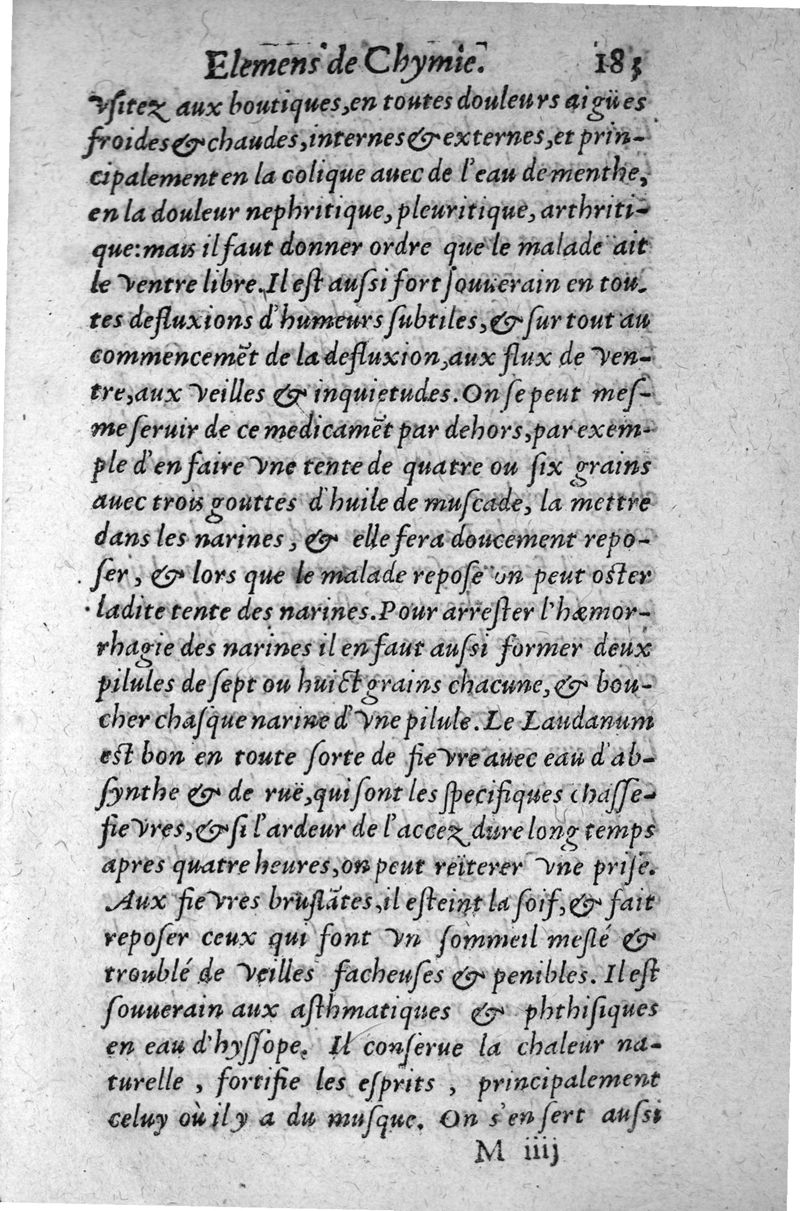 Elemens de Chymie. 183
vsitez aux boutiques, en toutes douleurs aigües
froides & chaudes, internes & externes, et prin-
cipalement en la colique auec de l'eau de menthe,
en la douleur nephritique, pleuritique, arthriti-
que: mais il faut donner ordre que le malade ait
le ventre libre. Il est aussi fort souuerain en tou-
tes defluxions d'humeurs subtiles, & sur tout au
commencemēt de la defluxion, aux flux de ven-
tre, aux veilles & inquietudes. On se peut mes-
me seruir de ce medicamēt par dehors, par exem-
ple d'en faire vne tente de quatre ou six grains
auec trois gouttes d'huile de muscade, la mettre
dans les narines, & elle fera doucement repo-
ser, & lors que le malade repose on peut oster
ladite tente des narines. Pour arrester l'hæmor-
rhagie des narines il en faut aussi former deux
pilules de sept ou huict grains chacune, & bou-
cher chasque narine d'vne pilule. Le Laudanum
est bon en toute sorte de fievre auec eau d'ab-
synthe & de ruë, qui sont les specifiques chasse-
fievres, & si l'ardeur de l'accez dure long temps
apres quatre heures, on peut reïterer vne prise.
Aux fievres bruslātes, il esteint la soif, & fait
reposer ceux qui font vn sommeil meslé &
troublé de veilles facheuses & penibles. Il est
souuerain aux asthmatiques & phthisiques
en eau d'hyssope. Il conserue la chaleur na-
turelle, fortifie les esprits, principalement
celuy où il y a du musque. On s'en sert aussi
M iiij